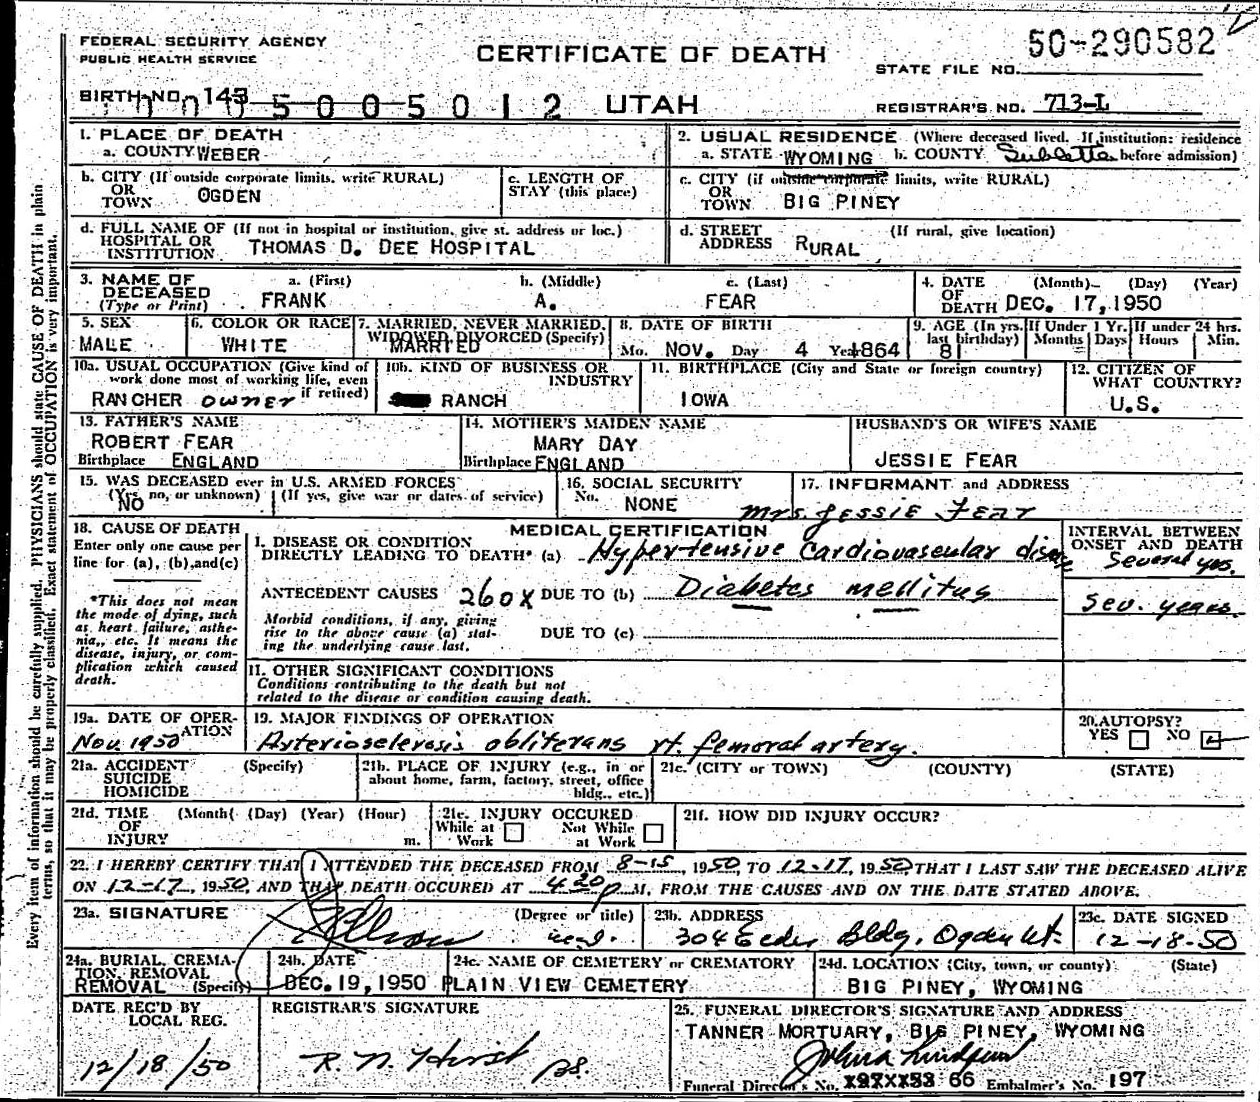 FEDERAL SECURITY AGENCY
PUBLIC HEALTH SERVICE
CERTIFICATE OF DEATH
STATE FILE NO. 50-290582
BIRTH NO. 143
005005012 UTAH
REGISTRAR'S NO. 713-L
1. PLACE OF DEATH
a. COUNTY WEBER
2. USUAL RESIDENCE (Where deceased lived. If institution: residence before admission)
a. STATE WYOMING b. COUNTY Sublette
b. CITY (If outside corporate limits, write RURAL)
OR
TOWN OGDEN
c. LENGTH OF
STAY (this place)
c. CITY (if outside corporate limits, write RURAL)
OR
TOWN BIG PINEY
d. FULL NAME OF (If not in hospital or institution, give st. address or loc.)
HOSPITAL OR
INSTITUTION THOMAS D. DEE HOSPITAL
d. STREET (If rural, give location)
ADDRESS RURAL
3. NAME OF DECEASED (Type or Print)
a. (First) b. (Middle) c. (Last)
FRANK A. FEAR
4. DATE OF DEATH (Month) (Day) (Year)
DEC. 17, 1950
5. SEX
MALE
6. COLOR OR RACE
WHITE
7. MARRIED, NEVER MARRIED,
WIDOWED, DIVORCED (Specify)
MARRIED
8. DATE OF BIRTH
Mo. NOV. Day 4 Year 1864
9. AGE (In yrs. last birthday)
8
If Under 1 Yr. Months Days
If under 24 hrs. Hours Min.
10a. USUAL OCCUPATION (Give kind of
work done most of working life, even
if retired)
RANCHER owner
10b. KIND OF BUSINESS OR
INDUSTRY
RANCH
11. BIRTHPLACE (City and State or foreign country)
IOWA
12. CITIZEN OF
WHAT COUNTRY?
U.S.
13. FATHER'S NAME
ROBERT FEAR
Birthplace ENGLAND
14. MOTHER'S MAIDEN NAME
MARY DAY
Birthplace ENGLAND
HUSBAND'S OR WIFE'S NAME
JESSIE FEAR
15. WAS DECEASED ever in U.S. ARMED FORCES?
(Yes, no, or unknown) (If yes, give war or dates of service)
NO
16. SOCIAL SECURITY
No. NONE
17. INFORMANT and ADDRESS
Mrs. JESSIE FEAR
18. CAUSE OF DEATH
Enter only one cause per
line for (a), (b), and (c)
*This does not mean
the mode of dying, such
as heart failure, asthe-
nia, etc. It means the
disease, injury, or com-
plication which caused
death.
MEDICAL CERTIFICATION
I. DISEASE OR CONDITION
DIRECTLY LEADING TO DEATH* (a) Hypertensive Cardiovascular disease
INTERVAL BETWEEN
ONSET AND DEATH
Several yrs.
ANTECEDENT CAUSES 260X DUE TO (b) Diabetes mellitus
Sev. years
Morbid conditions, if any, giving
rise to the above cause (a) stat-
ing the underlying cause last.
DUE TO (c)
II. OTHER SIGNIFICANT CONDITIONS
Conditions contributing to the death but not
related to the disease or condition causing death.
19a. DATE OF OPER-
ATION
Nov. 1950
19. MAJOR FINDINGS OF OPERATION
Arteriosclerosis obliterans rt. femoral artery.
20. AUTOPSY?
YES NO
21a. ACCIDENT (Specify)
SUICIDE
HOMICIDE
21b. PLACE OF INJURY (e.g., in or
about home, farm, factory, street, office
bldg., etc.)
21c. (CITY or TOWN) (COUNTY) (STATE)
21d. TIME (Month) (Day) (Year) (Hour)
OF
INJURY m.
21e. INJURY OCCURED
While at Work Not While at Work
21f. HOW DID INJURY OCCUR?
22. I HEREBY CERTIFY THAT I ATTENDED THE DECEASED FROM 8-15, 1950, TO 12-17, 1950, THAT I LAST SAW THE DECEASED ALIVE
ON 12-17, 1950, AND THAT DEATH OCCURED AT 4 20 P M, FROM THE CAUSES AND ON THE DATE STATED ABOVE.
23a. SIGNATURE (Degree or title)
m.d.
23b. ADDRESS
304 Eccles Bldg. Ogden Ut.
23c. DATE SIGNED
12-18-50
24a. BURIAL, CREMA-
TION, REMOVAL
REMOVAL (Specify)
24b. DATE
DEC. 19, 1950
24c. NAME OF CEMETERY or CREMATORY
PLAIN VIEW CEMETERY
24d. LOCATION (City, town, or county) (State)
BIG PINEY, WYOMING
DATE REC'D BY
LOCAL REG.
12/18/50
REGISTRAR'S SIGNATURE
R. N. Hirst
25. FUNERAL DIRECTOR'S SIGNATURE AND ADDRESS
TANNER MORTUARY, BIG PINEY, WYOMING
Funeral Director's No. 66 Embalmer's No. 197
Every item of information should be carefully supplied. PHYSICIANS should state CAUSE OF DEATH in plain
terms, so that it may be properly classified. Exact statement of OCCUPATION is very important.